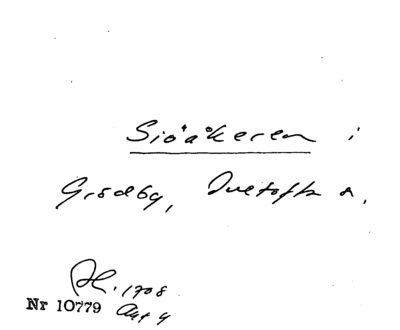 Siöåkeren i
Grödby, Duetofta s.
AL. 1708
Nr 10779 Akt 4